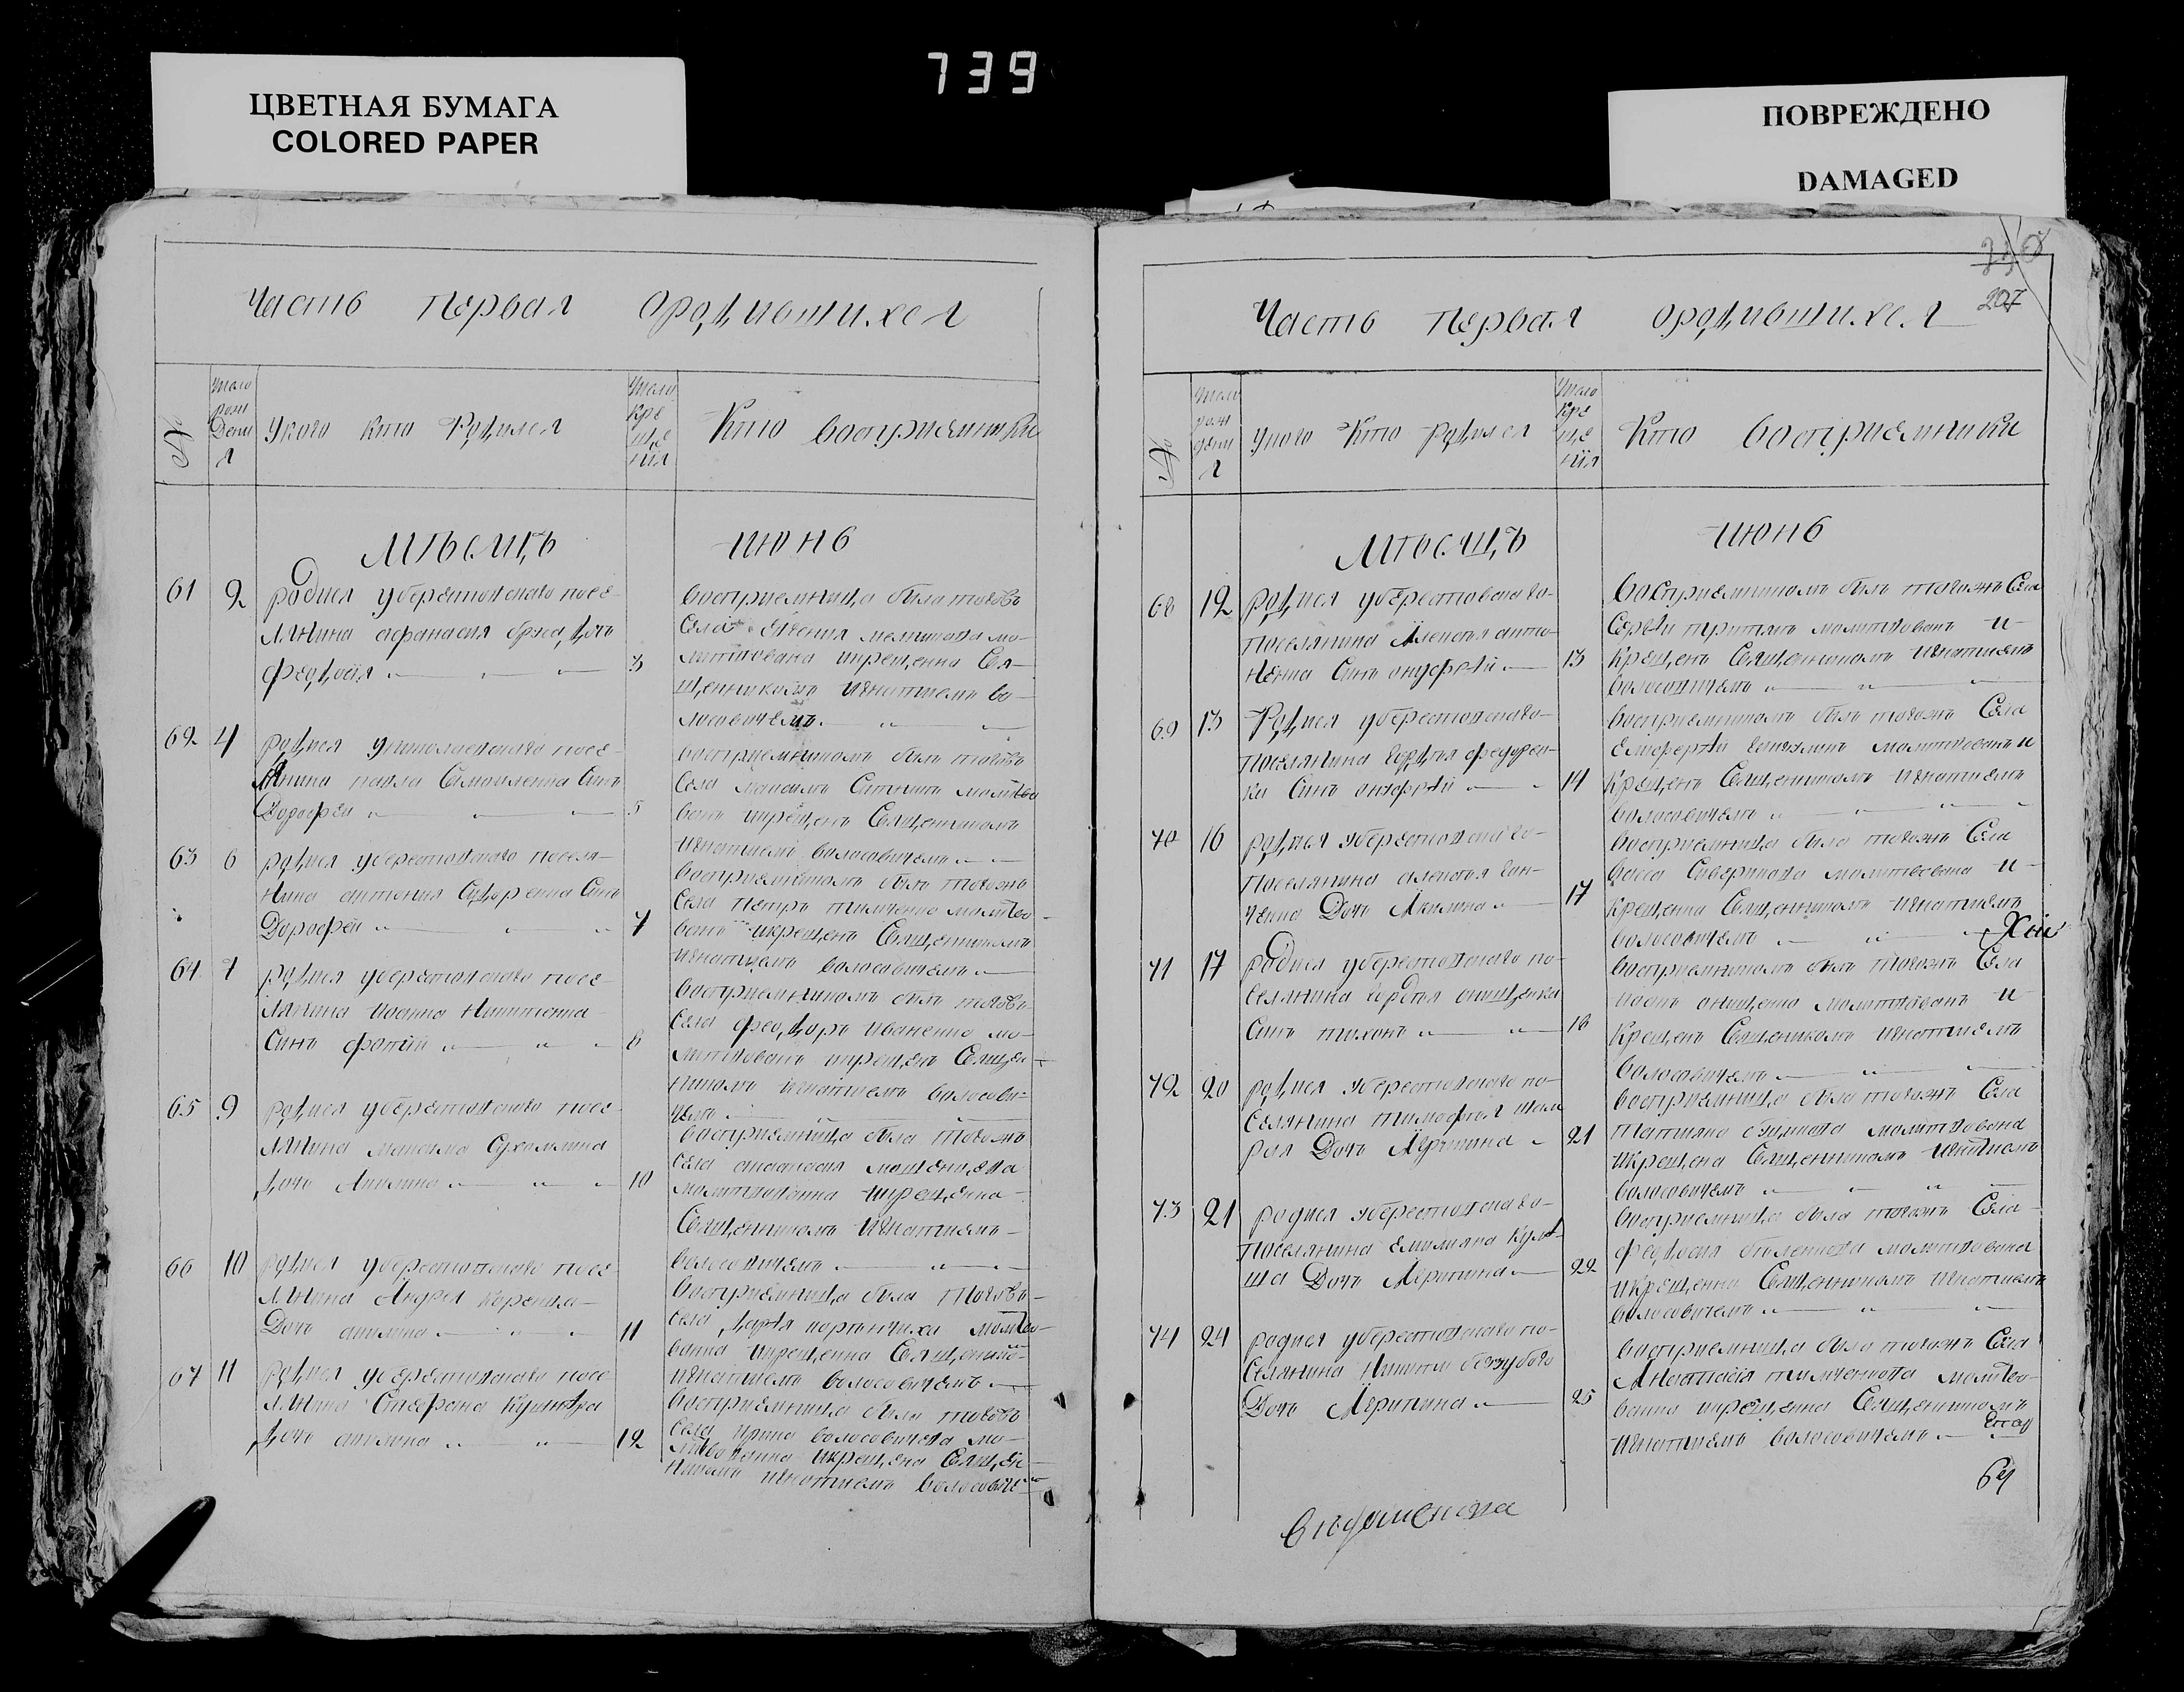 739
ЦВЕТНАЯ БУМАГА
COLORED PAPER
ПОВРЕЖДЕНО
DAMAGED
Часть первая ородившихся
№
число рож дени я
У кого кто Родился
Число кре ще нїя
Кто восприемники
Мѣсяцъ июнь
61 2 родися уберестовскаго посе-
лянина афанасия дочь
феодосія 3
восприемница была тогожъ
Села молитвована икрещенна Свя-
щенникомъ игнатиемъ во-
лосовичемъ
62 4 родися посе-
лянина павла Самойленка Синъ
Дорофей 5
восприемникомъ былъ тогожъ
Села максимъ молитво
ванъ икрещенъ Священникомъ
игнатиемъ волосовичемъ
63 6 родися уберестовскаго поселя-
нина антония Сидоренка Синъ
Дорофей 7
восприемникомъ былъ тогожъ
Села петръ тимченко молитво-
ванъ икрещенъ Священникомъ
игнатиемъ волосовичемъ
64 7 родися уберестовскаго посе-
лянина иоанна Никитенка
Синъ фотій 8
восприемникомъ былъ тогожъ
Села феодоръ иваненко мо-
литвованъ икрещенъ Священ-
никомъ игнатиемъ волосови-
чемъ
65 9 родися уберестовскаго посе-
лянина максима Сухомлина
дочь Акилина 10
восприемница была тогожъ
Села анастасия
молитвованна икрещенна
Священникомъ игнатиемъ
волосовичемъ
66 10 родися уберестовскаго посе-
лянина Андрея
Дочь акилина 11
восприемница была тогожъ
Села дарія молитво-
ванна икрещенна Священико-
игнатиемъ волосовичемъ
67 11 родися уберестовскаго посе-
лянина Стефана Кушніра
дочь акилина 12
восприемница была тогожъ
Села ирина волосовичева мо-
икрещена Священ-
никомъ игнатиемъ волосовиче-
207
Часть первая ородившихся
№
число рож дени я
У кого Кто родился
Число Кре ще нїя
Кто восприемники
Мѣсяцъ июнь
68 12 родися уберестовскаго
поселянина Алексѣя анто-
ненка Синъ онуфрій 13
восприемникомъ былъ тогожъ Села
молитвованъ и
Крещенъ Священникомъ игнатиемъ
волосовичемъ
69 13 Родися уберестовскаго
поселянина федорен-
ка Синъ онуфрій 14
восприемникомъ былъ тогожъ Села
молитвованъ и
Крещенъ Священникомъ игнатиемъ
волосовичемъ
70 16 родися уберестовскаго
поселянина алексѣя гон-
ченка Дочь Акилина 17
восприемница была тогожъ Села
васса молитвована и
Крещенна Священникомъ игнатиемъ
волосовичемъ
71 17 родися уберестовскаго по-
селянина онищенка
Синъ тихонъ 18
восприемникомъ былъ тогожъ Села
онищенко молитвованъ и
Крещенъ Священикомъ игнатиемъ
волосовичемъ
72 20 родися уберестовскаго по-
Селянина тимофея
Дочь Агрипина 21
восприемница была тогожъ Села
татияна молитвована
икрещена Священникомъ игнатиемъ
волосовичемъ
73 21 родися уберестовскаго
поселянина емилияна
Дочь Агрипина 22
восприемница была тогожъ Села
феодосия молитвована
икрещенна Священникомъ игнатиемъ
волосовичемъ
74 24 родися уберестовскаго по-
Селянина Никиты беззубого
Дочь Агрипина 25
восприемница была тогожъ Села
Анастасія тимченкова молитво-
ванна икрещенна Священникомъ
игнатиемъ волосовичемъ